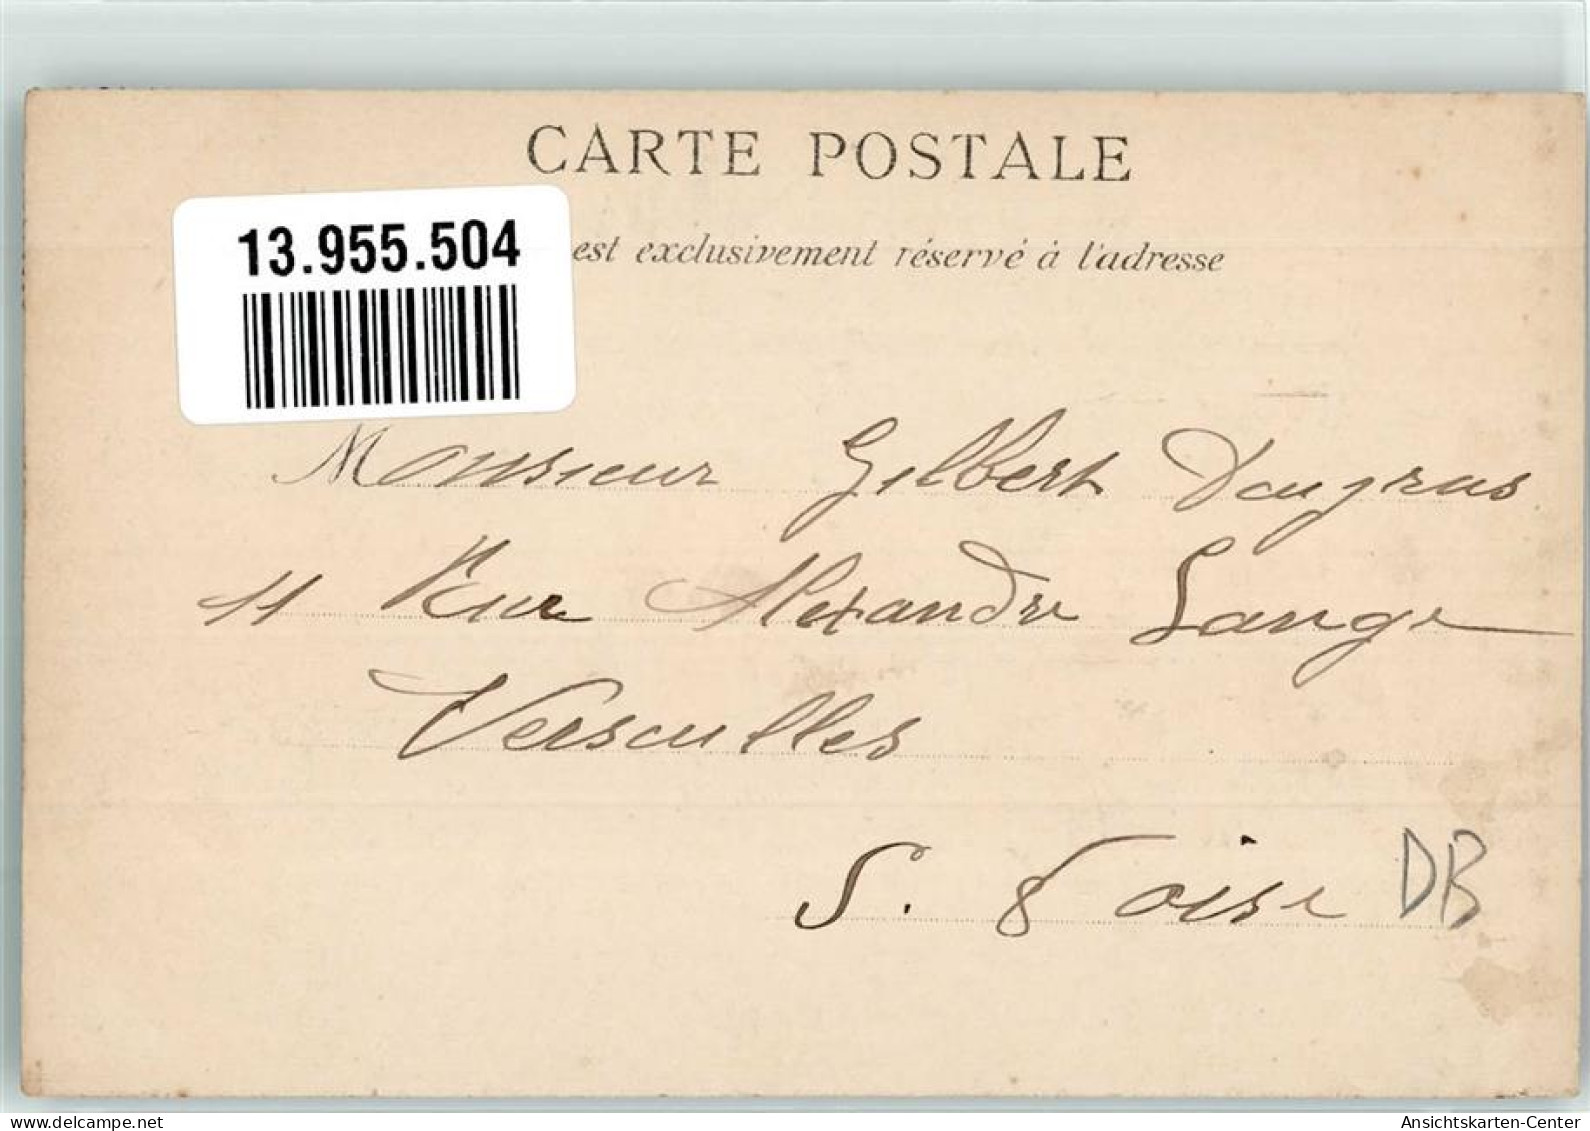 CARTE POSTALE
13.955.504
est exclusivement réservé à l'adresse
Monsieur Gilbert
11 Rue Alexandre Lange
Versailles
S. & Oise DB
delcampe.net
Ansichtskarten-Center